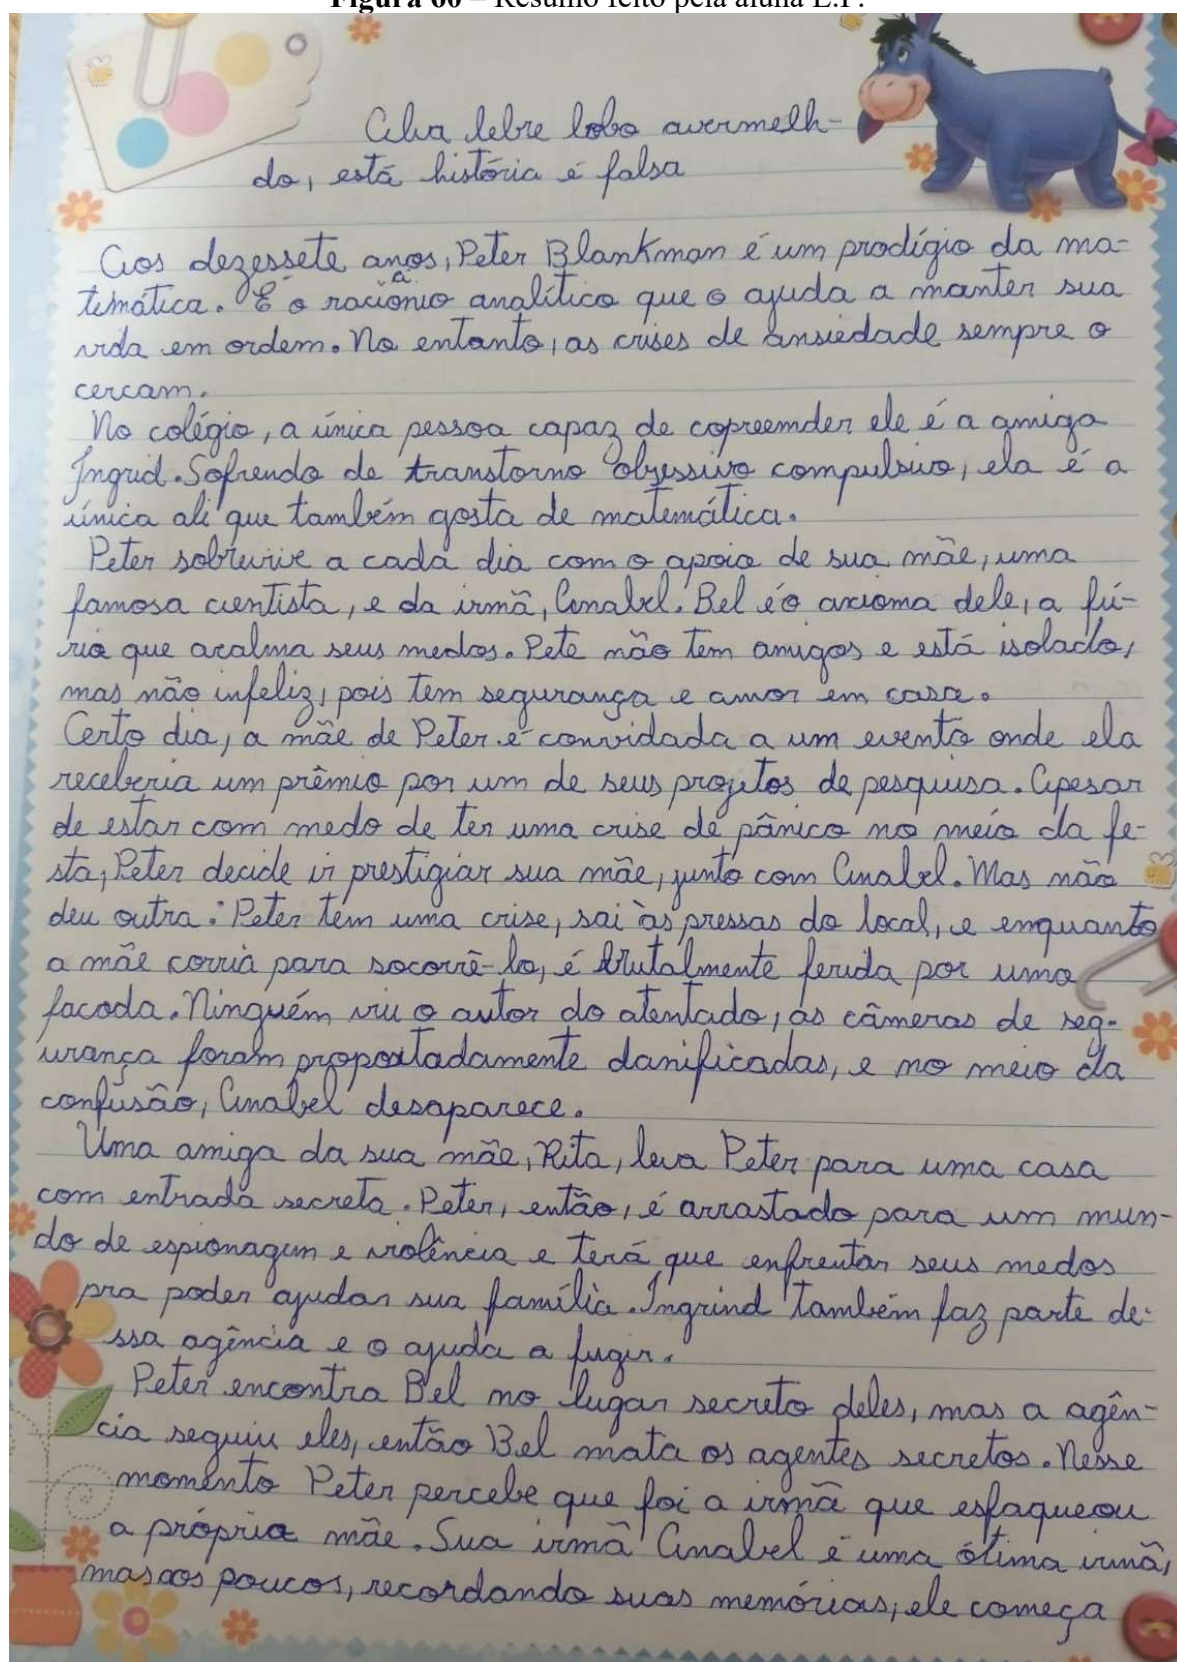 Figura 60 – Resumo feito pela aluna E.P.
Alva lebre lobo avermelh-
do, está história é falsa
Aos dezessete anos, Peter Blankman é um prodígio da ma-
temática. É o raciônio analítico que o ajuda a manter sua
vida em ordem. No entanto, as crises de ansiedade sempre o
cercam.
No colégio, a única pessoa capaz de copreemder ele é a amiga
Ingrid. Sofrendo de transtorno obsessivo compulsivo, ela é a
única ali que também gosta de matemática.
Peter sobrevive a cada dia com o apoio de sua mãe, uma
famosa cientista, e da irmã, Anabel. Bel é o axioma dele, a fú-
ria que acalma seus medos. Pete não tem amigos e está isolado,
mas não infeliz, pois tem segurança e amor em casa.
Certo dia, a mãe de Peter é convidada a um evento onde ela
receberia um prêmio por um de seus projetos de pesquisa. Apesar
de estar com medo de ter uma crise de pânico no meio da fe-
sta, Peter decide ir prestigiar sua mãe, junto com Anabel. Mas não
deu outra: Peter tem uma crise, sai às pressas do local, e enquanto
a mãe corria para socorrê-lo, é brutalmente ferida por uma
facada. Ninguém viu o autor do atentado, as câmeras de seg-
urança foram propositadamente danificadas, e no meio da
confusão, Anabel desaparece.
Uma amiga da sua mãe, Rita, leva Peter para uma casa
com entrada secreta. Peter, então, é arrastado para um mun-
do de espionagem e violência e terá que enfrentar seus medos
pra poder ajudar sua família. Ingrind também faz parte de-
ssa agência e o ajuda a fugir.
Peter encontra Bel no lugar secreto deles, mas a agên-
cia seguiu eles, então Bel mata os agentes secretos. Nesse
momento Peter percebe que foi a irmã que esfaqueou
a própria mãe. Sua irmã Anabel é uma ótima irmã,
mas aos poucos, recordando suas memórias, ele começa